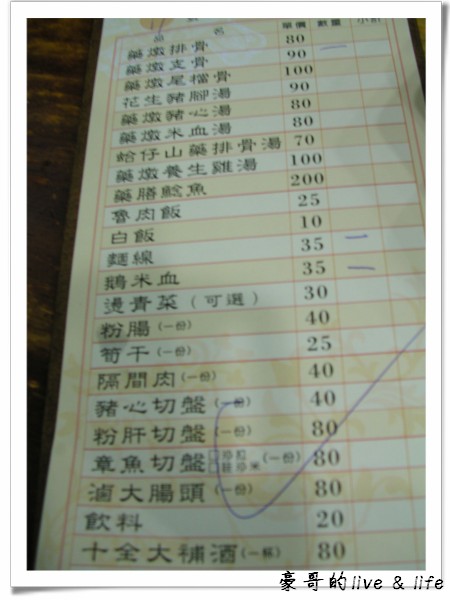 品名 單價 數量 小計
藥燉排骨 80 一
藥燉支骨 90
藥燉尾擋骨 100
花生豬腳湯 90
藥燉豬心湯 80
藥燉米血湯 80
蛤仔山藥排骨湯 70
藥燉養生雞湯 100
藥膳鯰魚 200
魯肉飯 25
白飯 10
麵線 35 一
鵝米血 35 一
燙青菜(可選) 30
粉腸(一份) 40
筍干(一份) 25
隔間肉(一份) 40
豬心切盤(一份) 40
粉肝切盤(一份) 80
章魚切盤(一份) 80
滷大腸頭(一份) 80
飲料 20
十全大補酒(一杯) 80
豪哥的live & life